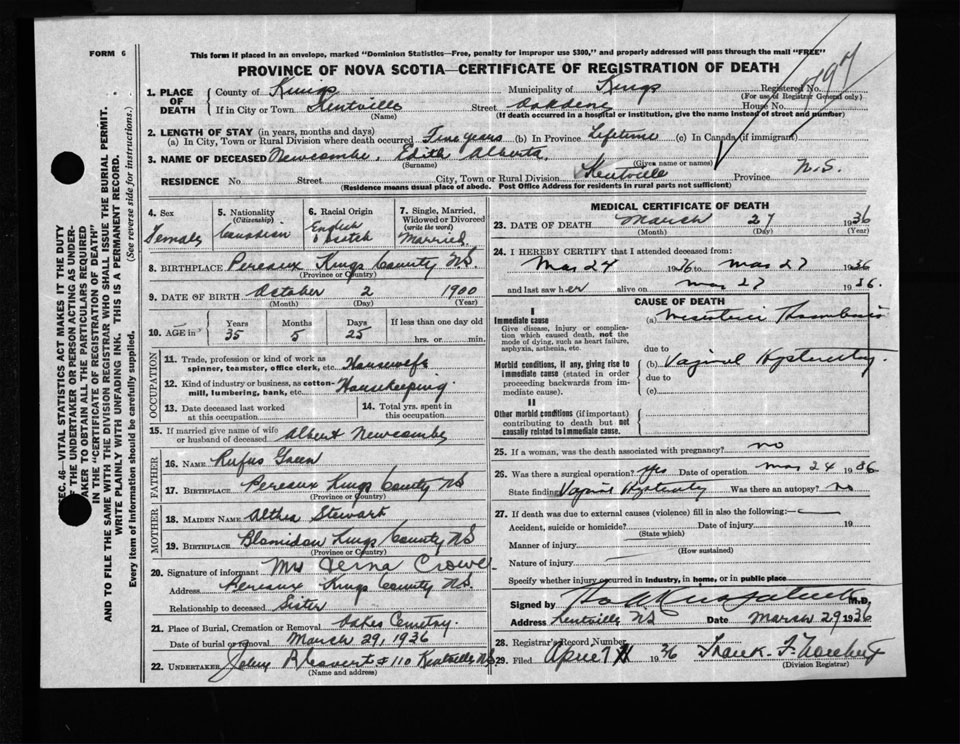 FORM 6
This form if placed in an envelope, marked "Dominion Statistics—Free, penalty for improper use $300," and properly addressed will pass through the mail "FREE"
PROVINCE OF NOVA SCOTIA—CERTIFICATE OF REGISTRATION OF DEATH
1. PLACE OF DEATH
County of Kings Municipality of Kings Registered No.
(For use of Registrar General only)
If in City or Town Kentville Street Oakdene House No.
(If death occurred in a hospital or institution, give the name instead of street and number)
2. LENGTH OF STAY (in years, months and days)
(a) In City, Town or Rural Division where death occurred Five years (b) In Province Lifetime (c) In Canada (if immigrant)
3. NAME OF DECEASED Newcombe, Edith Alberta.
(Surname) (Given name or names)
RESIDENCE No Street City, Town or Rural Division Kentville Province N.S.
(Residence means usual place of abode. Post Office Address for residents in rural parts not sufficient)
4. Sex Female
5. Nationality (Citizenship) Canadian
6. Racial Origin English & Scotch
7. Single, Married, Widowed or Divorced (write the word) Married
8. BIRTHPLACE Pereaux Kings County NS.
(Province or Country)
9. DATE OF BIRTH October 2 1900
(Month) (Day) (Year)
10. AGE in Years 35 Months 5 Days 25 If less than one day old hrs. or min.
OCCUPATION
11. Trade, profession or kind of work as spinner, teamster, office clerk, etc. Housewife
12. Kind of industry or business, as cotton-mill, lumbering, bank, etc. Housekeeping.
13. Date deceased last worked at this occupation
14. Total yrs. spent in this occupation
15. If married give name of wife or husband of deceased Albert Newcombe
FATHER
16. NAME Rufus
17. BIRTHPLACE Pereaux Kings County NS
(Province or Country)
MOTHER
18. MAIDEN NAME Althea Stewart
19. BIRTHPLACE Blomidon Kings County NS
(Province or Country)
20. Signature of informant Mrs Verna Crowe
Address Pereaux Kings County NS.
Relationship to deceased Sister
21. Place of Burial, Cremation or Removal Oakes Cemetry.
Date of burial or removal March 29, 1936
22. UNDERTAKER John #110 Kentville NS
(Name and address)
MEDICAL CERTIFICATE OF DEATH
23. DATE OF DEATH March 27 1936
(Month) (Day) (Year)
24. I HEREBY CERTIFY that I attended deceased from:
Mar 24 1936 to Mar 27 1936
and last saw her alive on Mar 27 1936.
CAUSE OF DEATH
I
Immediate cause
Give disease, injury or complication which caused death, not the mode of dying, such as heart failure, asphyxia, asthenia, etc.
(a) Mesenteric Thrombosis
due to
Morbid conditions, if any, giving rise to immediate cause (stated in order proceeding backwards from immediate cause).
(b) Vaginal Hysterectomy.
due to
(c)
II
Other morbid conditions (if important) contributing to death but not causally related to immediate cause.
25. If a woman, was the death associated with pregnancy? no
26. Was there a surgical operation? Yes Date of operation Mar 24 1936
State finding Vaginal Was there an autopsy? no
27. If death was due to external causes (violence) fill in also the following:
Accident, suicide or homicide? Date of injury 19
(State which)
Manner of injury
(How sustained)
Nature of injury
Specify whether injury occurred in industry, in home, or in public place
Signed by M.D.
Address Kentville NS Date March 29 1936
28. Registrar's Record Number
29. Filed April 7 1936 Frank F.
(Division Registrar)
SEC. 46—VITAL STATISTICS ACT MAKES IT THE DUTY
THE UNDERTAKER OR PERSON ACTING AS UNDER-
TAKER TO OBTAIN ALL THE PARTICULARS REQUIRED
IN THE "CERTIFICATE OF REGISTRATION OF DEATH"
AND TO FILE THE SAME WITH THE DIVISION REGISTRAR WHO SHALL ISSUE THE BURIAL PERMIT.
WRITE PLAINLY WITH UNFADING INK. THIS IS A PERMANENT RECORD.
Every item of information should be carefully supplied. (See reverse side for instructions.)